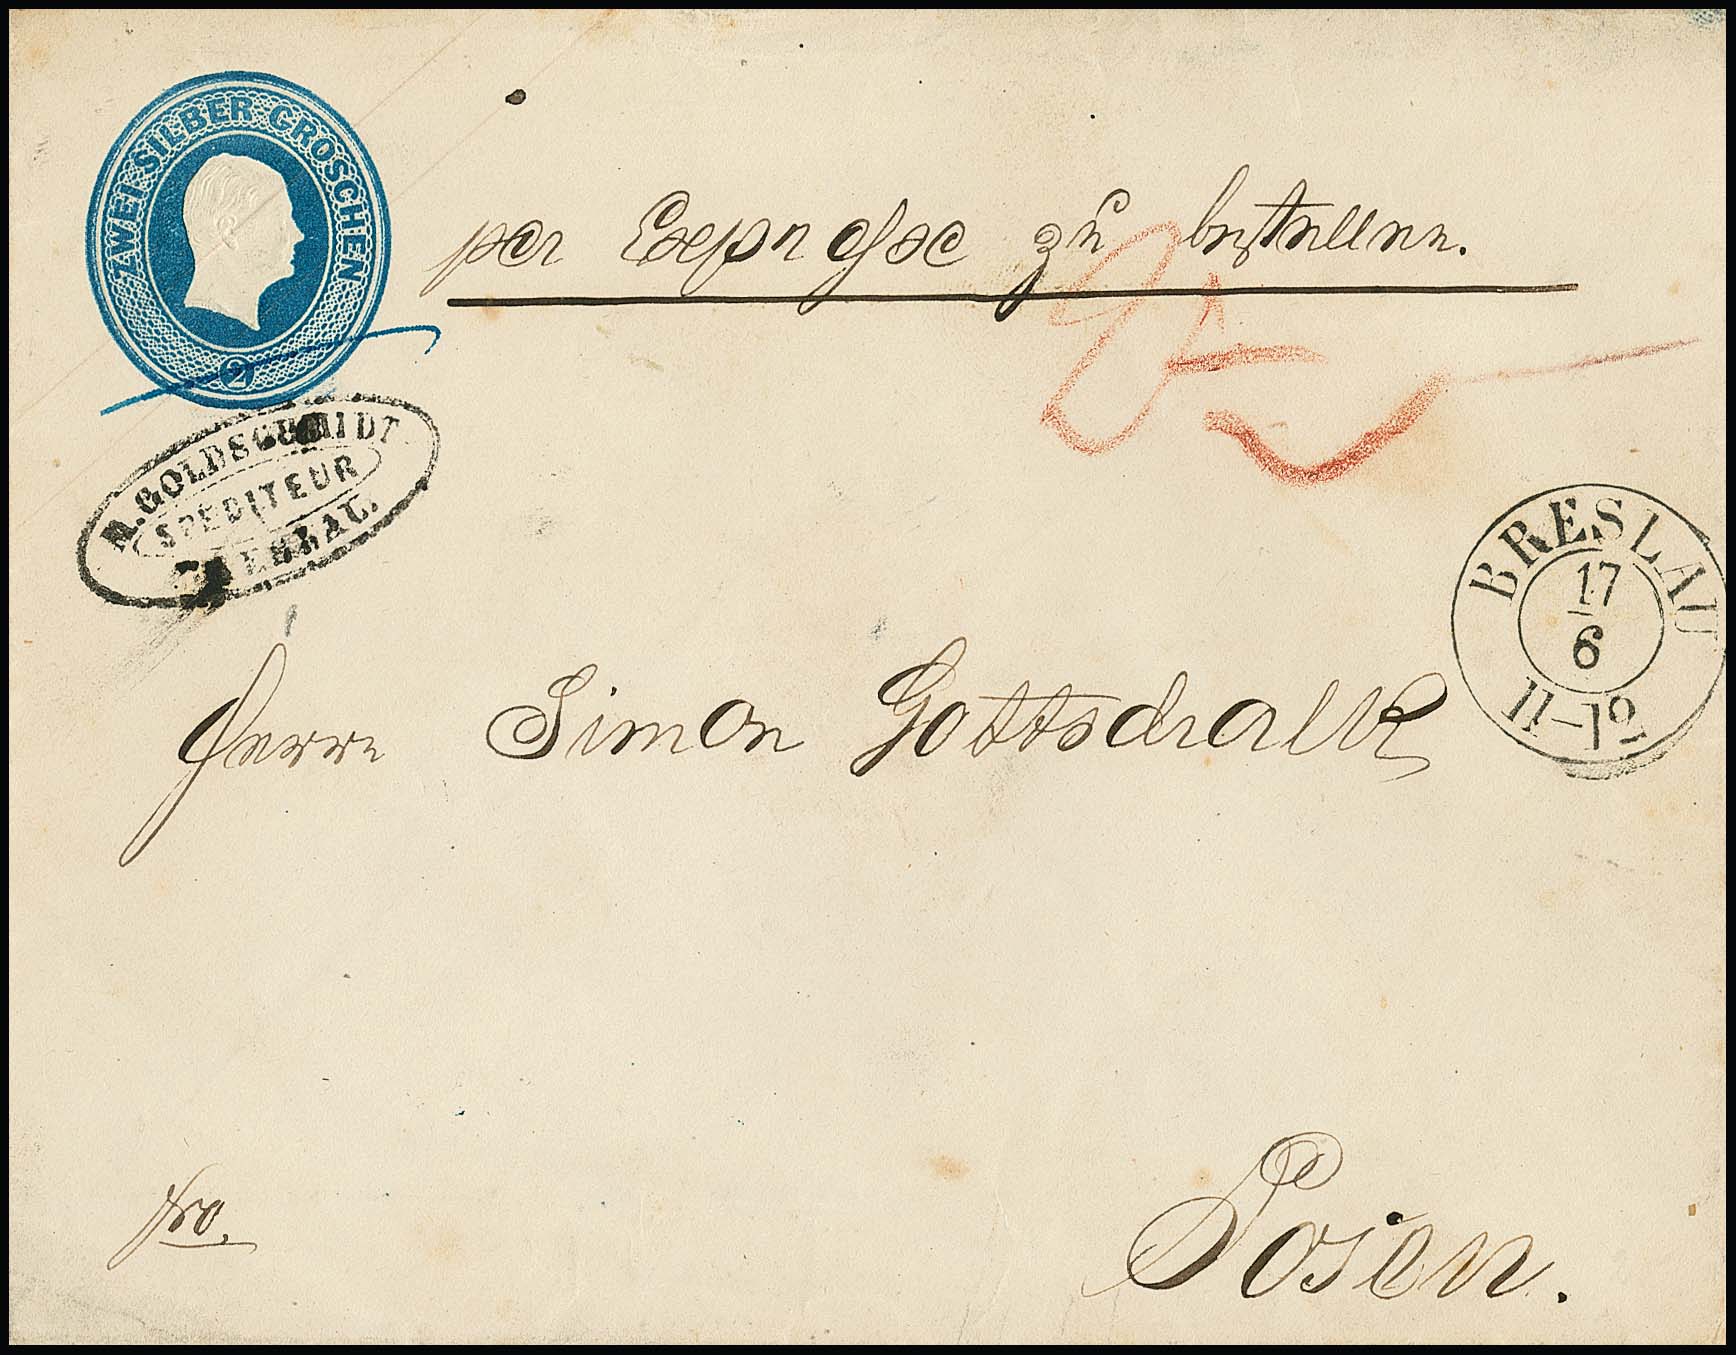 ZWEI SILBER GROSCHEN
2
per Expresse zu bestellen.
M. GOLDSCHMIDT
SPEDITEUR
BRESLAU.
BRESLAU
17
6
11-12
Herrn Simon Gottschalk
fro.
Posen.